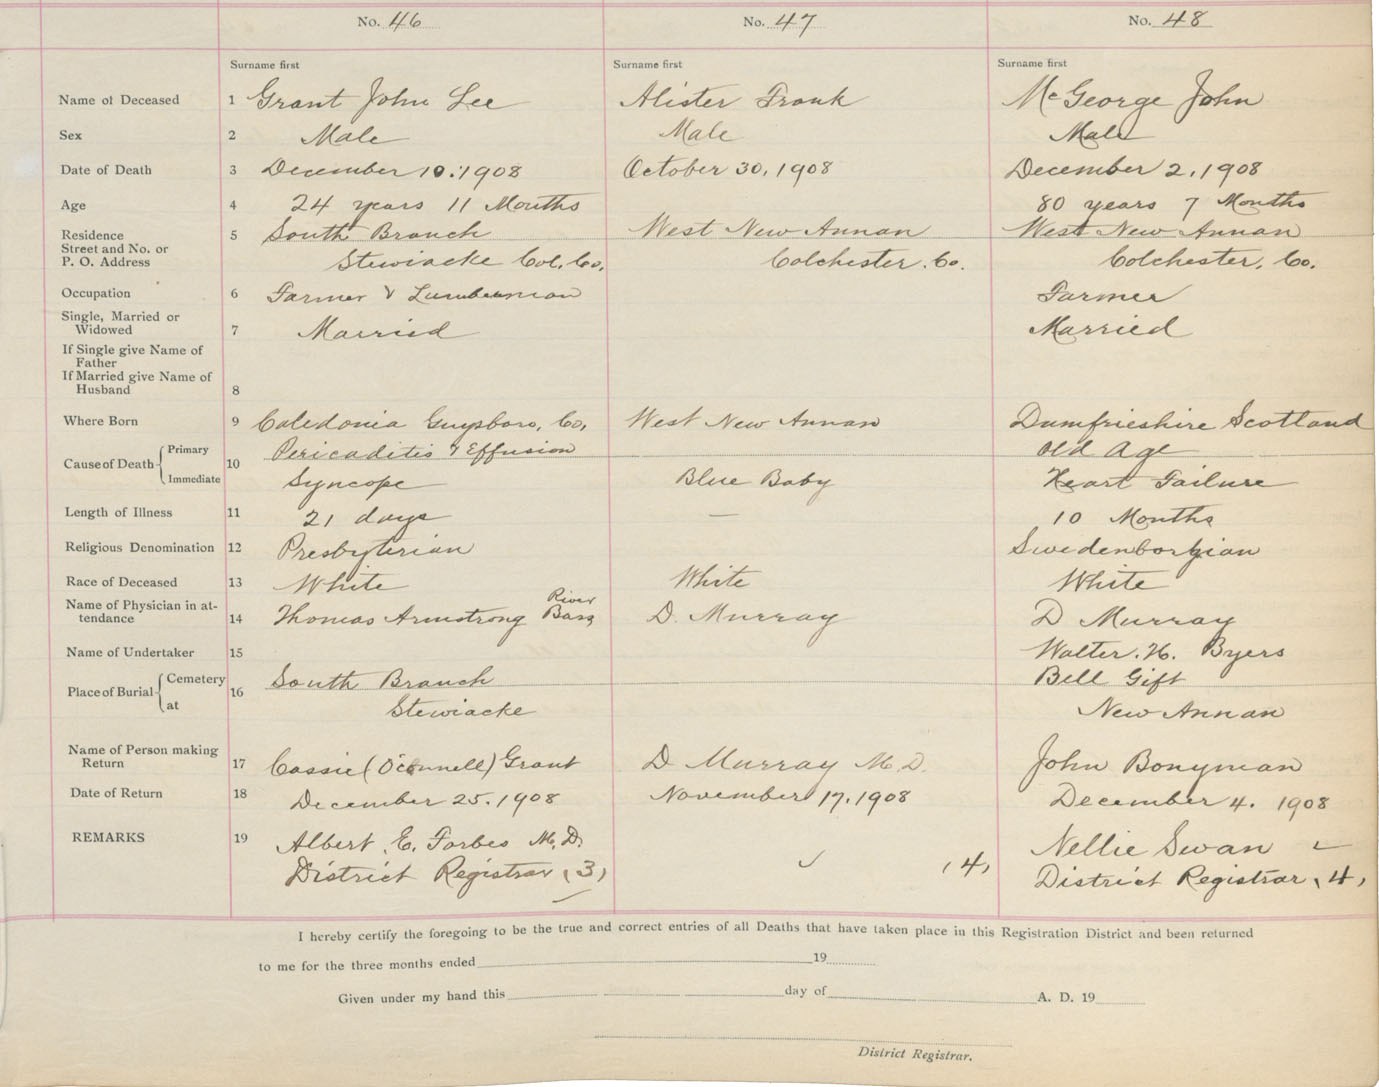 No. 46 No. 47 No. 48
Surname first Surname first Surname first
Name of Deceased 1 Grant John Lee Alister Frank McGeorge John
Sex 2 Male Male Male
Date of Death 3 December 10, 1908 October 30, 1908 December 2, 1908
Age 4 24 years 11 Months 80 years 7 Months
Residence 5 South Branch West New Annan West New Annan
Street and No. or
P. O. Address Stewiacke Col. Co. Colchester. Co. Colchester. Co.
Occupation 6 Farmer & Lumberman Farmer
Single, Married or
Widowed 7 Married Married
If Single give Name of
Father
If Married give Name of
Husband 8
Where Born 9 Caledonia Guysboro, Co, West New Annan Dumfrieshire Scotland
Cause of Death { Primary 10 Pericaditis & Effusion Old Age
Immediate Syncope Blue Baby Heart Failure
Length of Illness 11 21 days — 10 Months
Religious Denomination 12 Presbyterian Swedenborgian
Race of Deceased 13 White White White
Name of Physician in at-
tendance 14 Thomas Armstrong River Bass D. Murray D Murray
Name of Undertaker 15 Walter. H. Byers
Place of Burial { Cemetery 16 South Branch Bell Gift
at Stewiacke New Annan
Name of Person making
Return 17 Cassie (O'Connell) Grant D Murray M.D. John Bonyman
Date of Return 18 December 25. 1908 November 17. 1908 December 4. 1908
REMARKS 19 Albert E. Forbes M.D. Nellie Swan
District Registrar (3) ✓ (4) District Registrar (4)
I hereby certify the foregoing to be the true and correct entries of all Deaths that have taken place in this Registration District and been returned
to me for the three months ended 19
Given under my hand this day of A. D. 19
District Registrar.